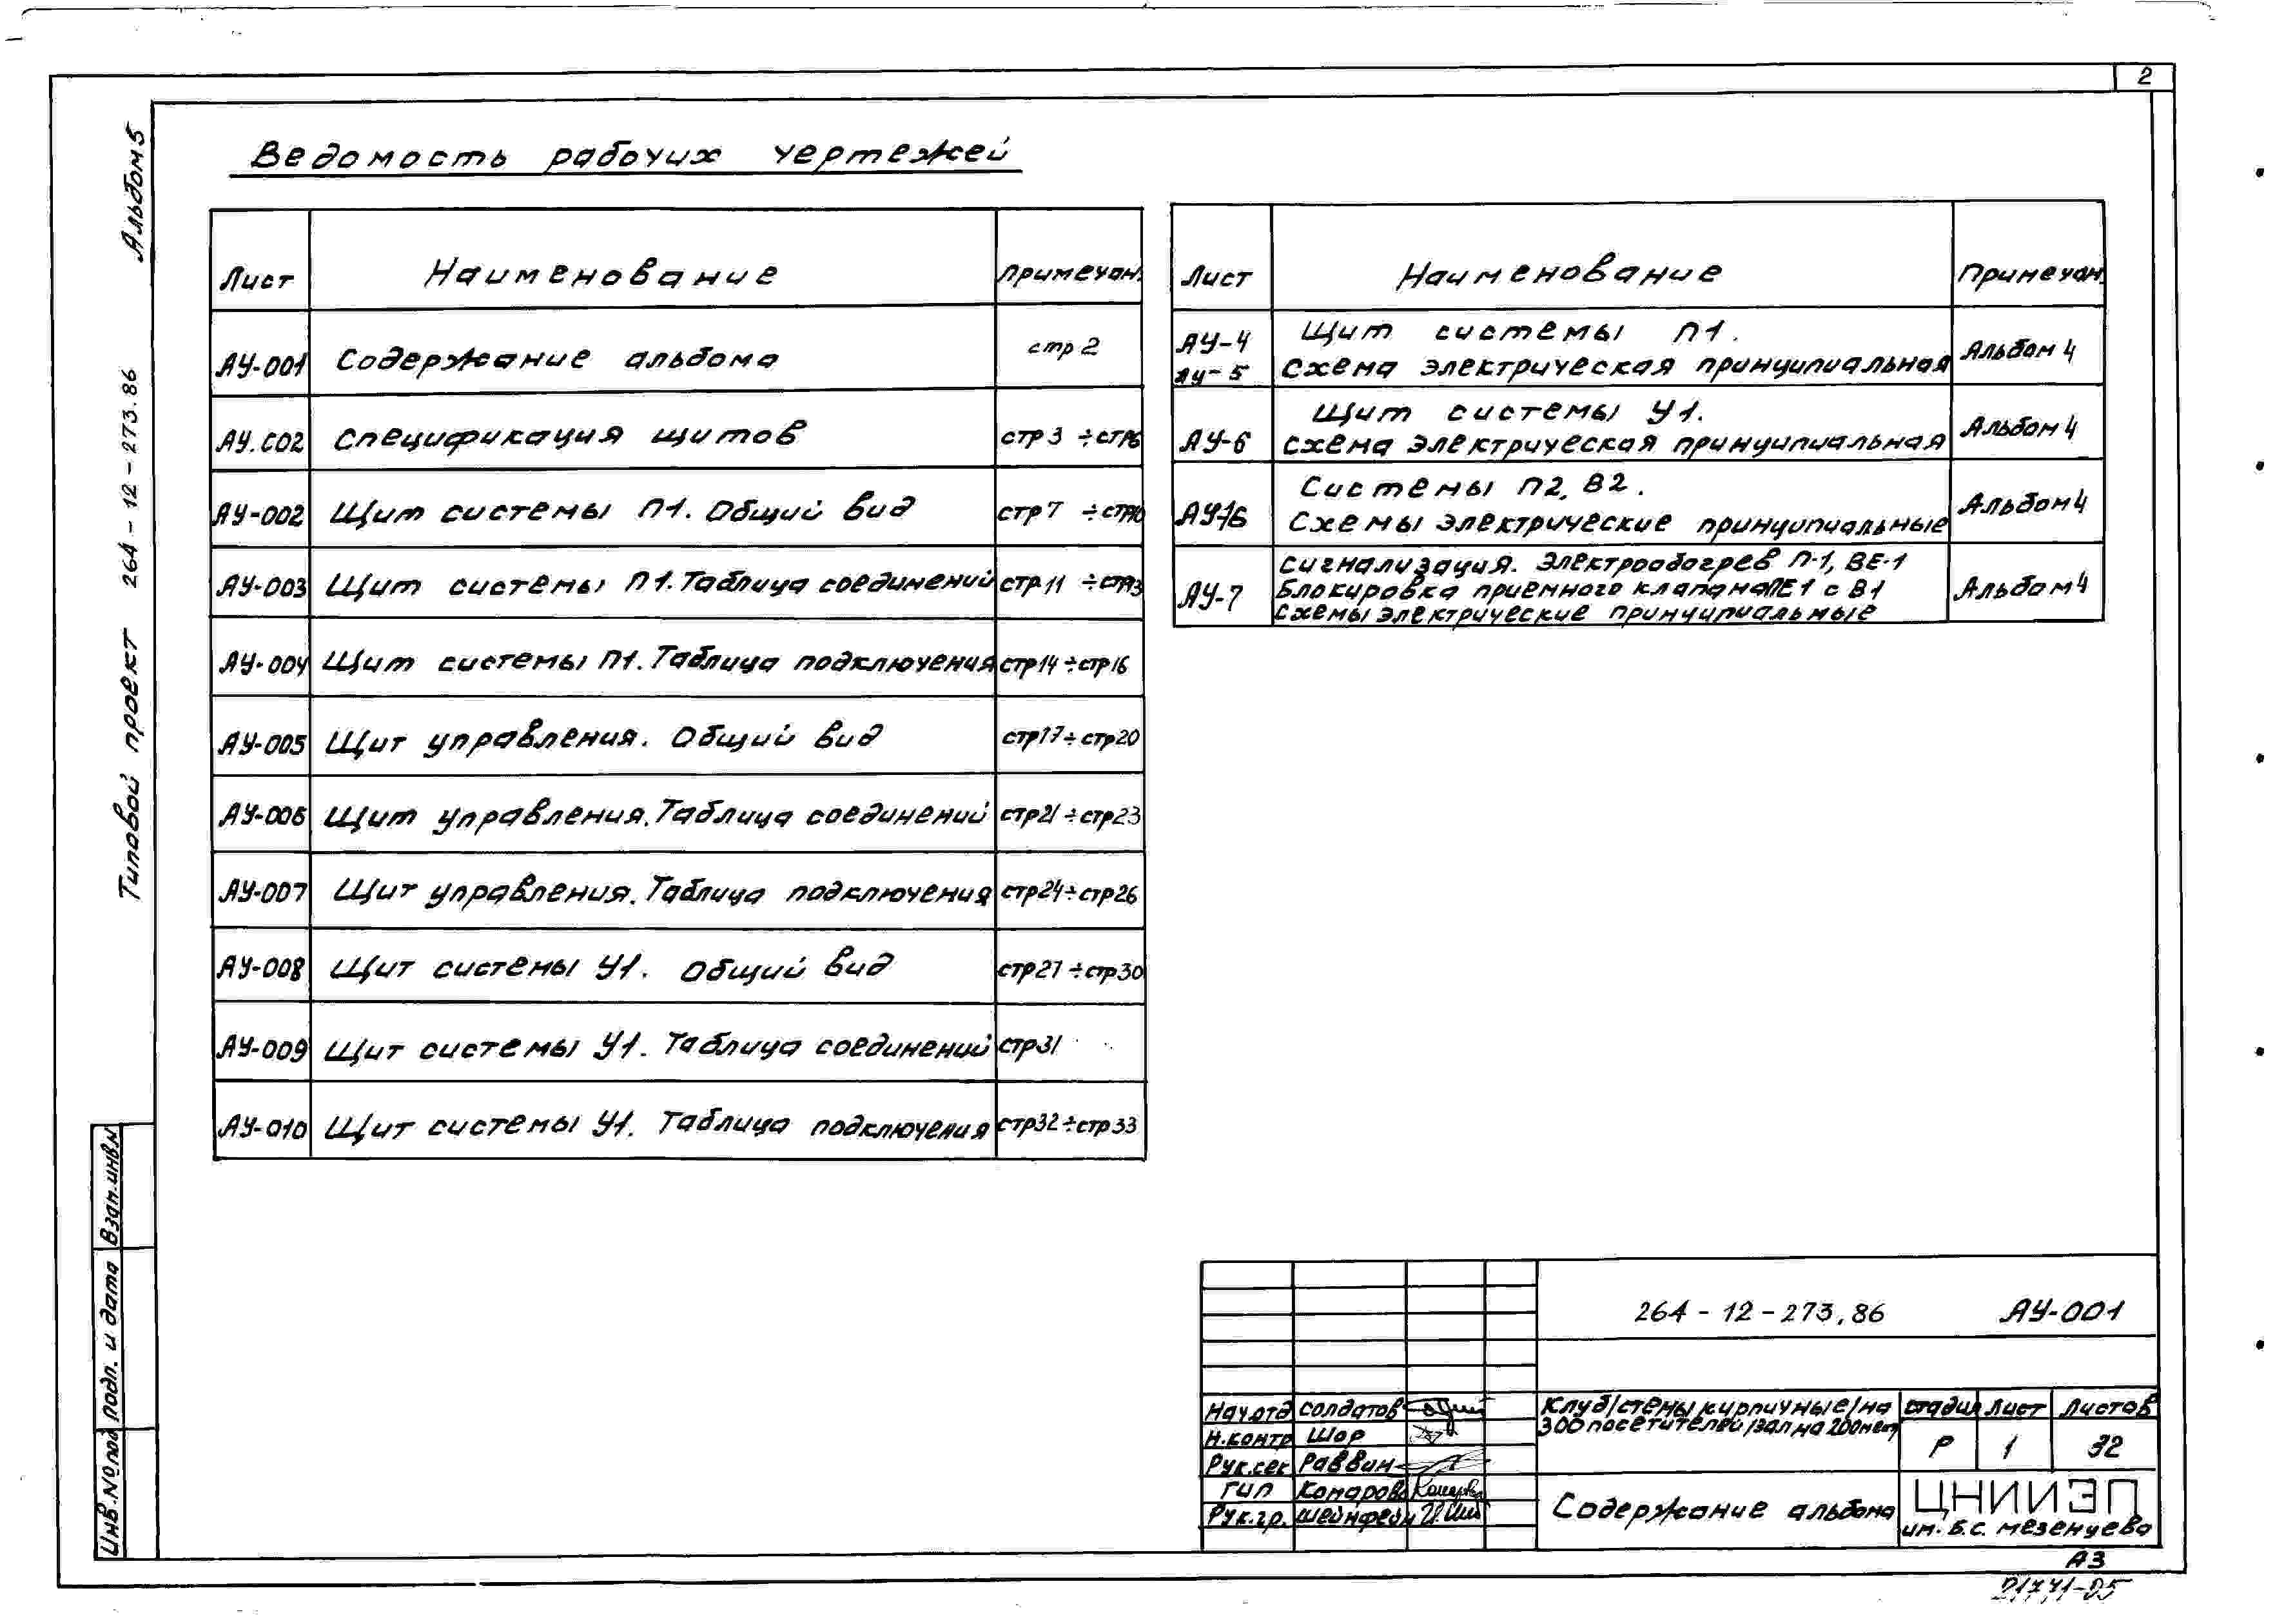 2
Альбом 5
Типовой проект 264-12-273.86
Ведомость рабочих чертежей
Лист Наименование Примечан.
АУ-001 Содержание альбома стр 2
АУ.СО2 Спецификация щитов стр 3 ÷ стр6
АУ-002 Щит системы П1. Общий вид стр 7 ÷ стр10
АУ-003 Щит системы П1. Таблица соединений стр 11 ÷ стр13
АУ-004 Щит системы П1. Таблица подключения стр 14 ÷ стр 16
АУ-005 Щит управления. Общий вид стр 17 ÷ стр 20
АУ-006 Щит управления. Таблица соединений стр 21 ÷ стр 23
АУ-007 Щит управления. Таблица подключения стр 24 ÷ стр 26
АУ-008 Щит системы У1. Общий вид стр 27 ÷ стр 30
АУ-009 Щит системы У1. Таблица соединений стр 31
АУ-010 Щит системы У1. Таблица подключения стр 32 ÷ стр 33
Лист Наименование Примечан.
АУ-4 Щит системы П1.
АУ-5 Схема электрическая принципиальная Альбом 4
Щит системы У1.
АУ-6 схема электрическая принципиальная Альбом 4
Системы П2, В2.
Схемы электрические принципиальные Альбом 4
Сигнализация. Электрообогрев П-1, ВЕ-1
АУ-7 Блокировка приемного клапана ПЕ1 с В1 Альбом 4
схемы электрические принципиальные
264-12-273.86 АУ-001
Нач.отд Солдатов
Н.контр Шор
Рук.сек Раввин
ГИП Комарова
Рук.гр. Шейнфейн
Клуб /стены кирпичные/ на
300 посетителей /зал на 200 мест/
стадия Лист Листов
Р 1 32
Содержание альбома
ЦНИИЭП
им. Б.С. Мезенцева
А3
21771-05
Взам.инв№
подп. и дата
Инв.№подл